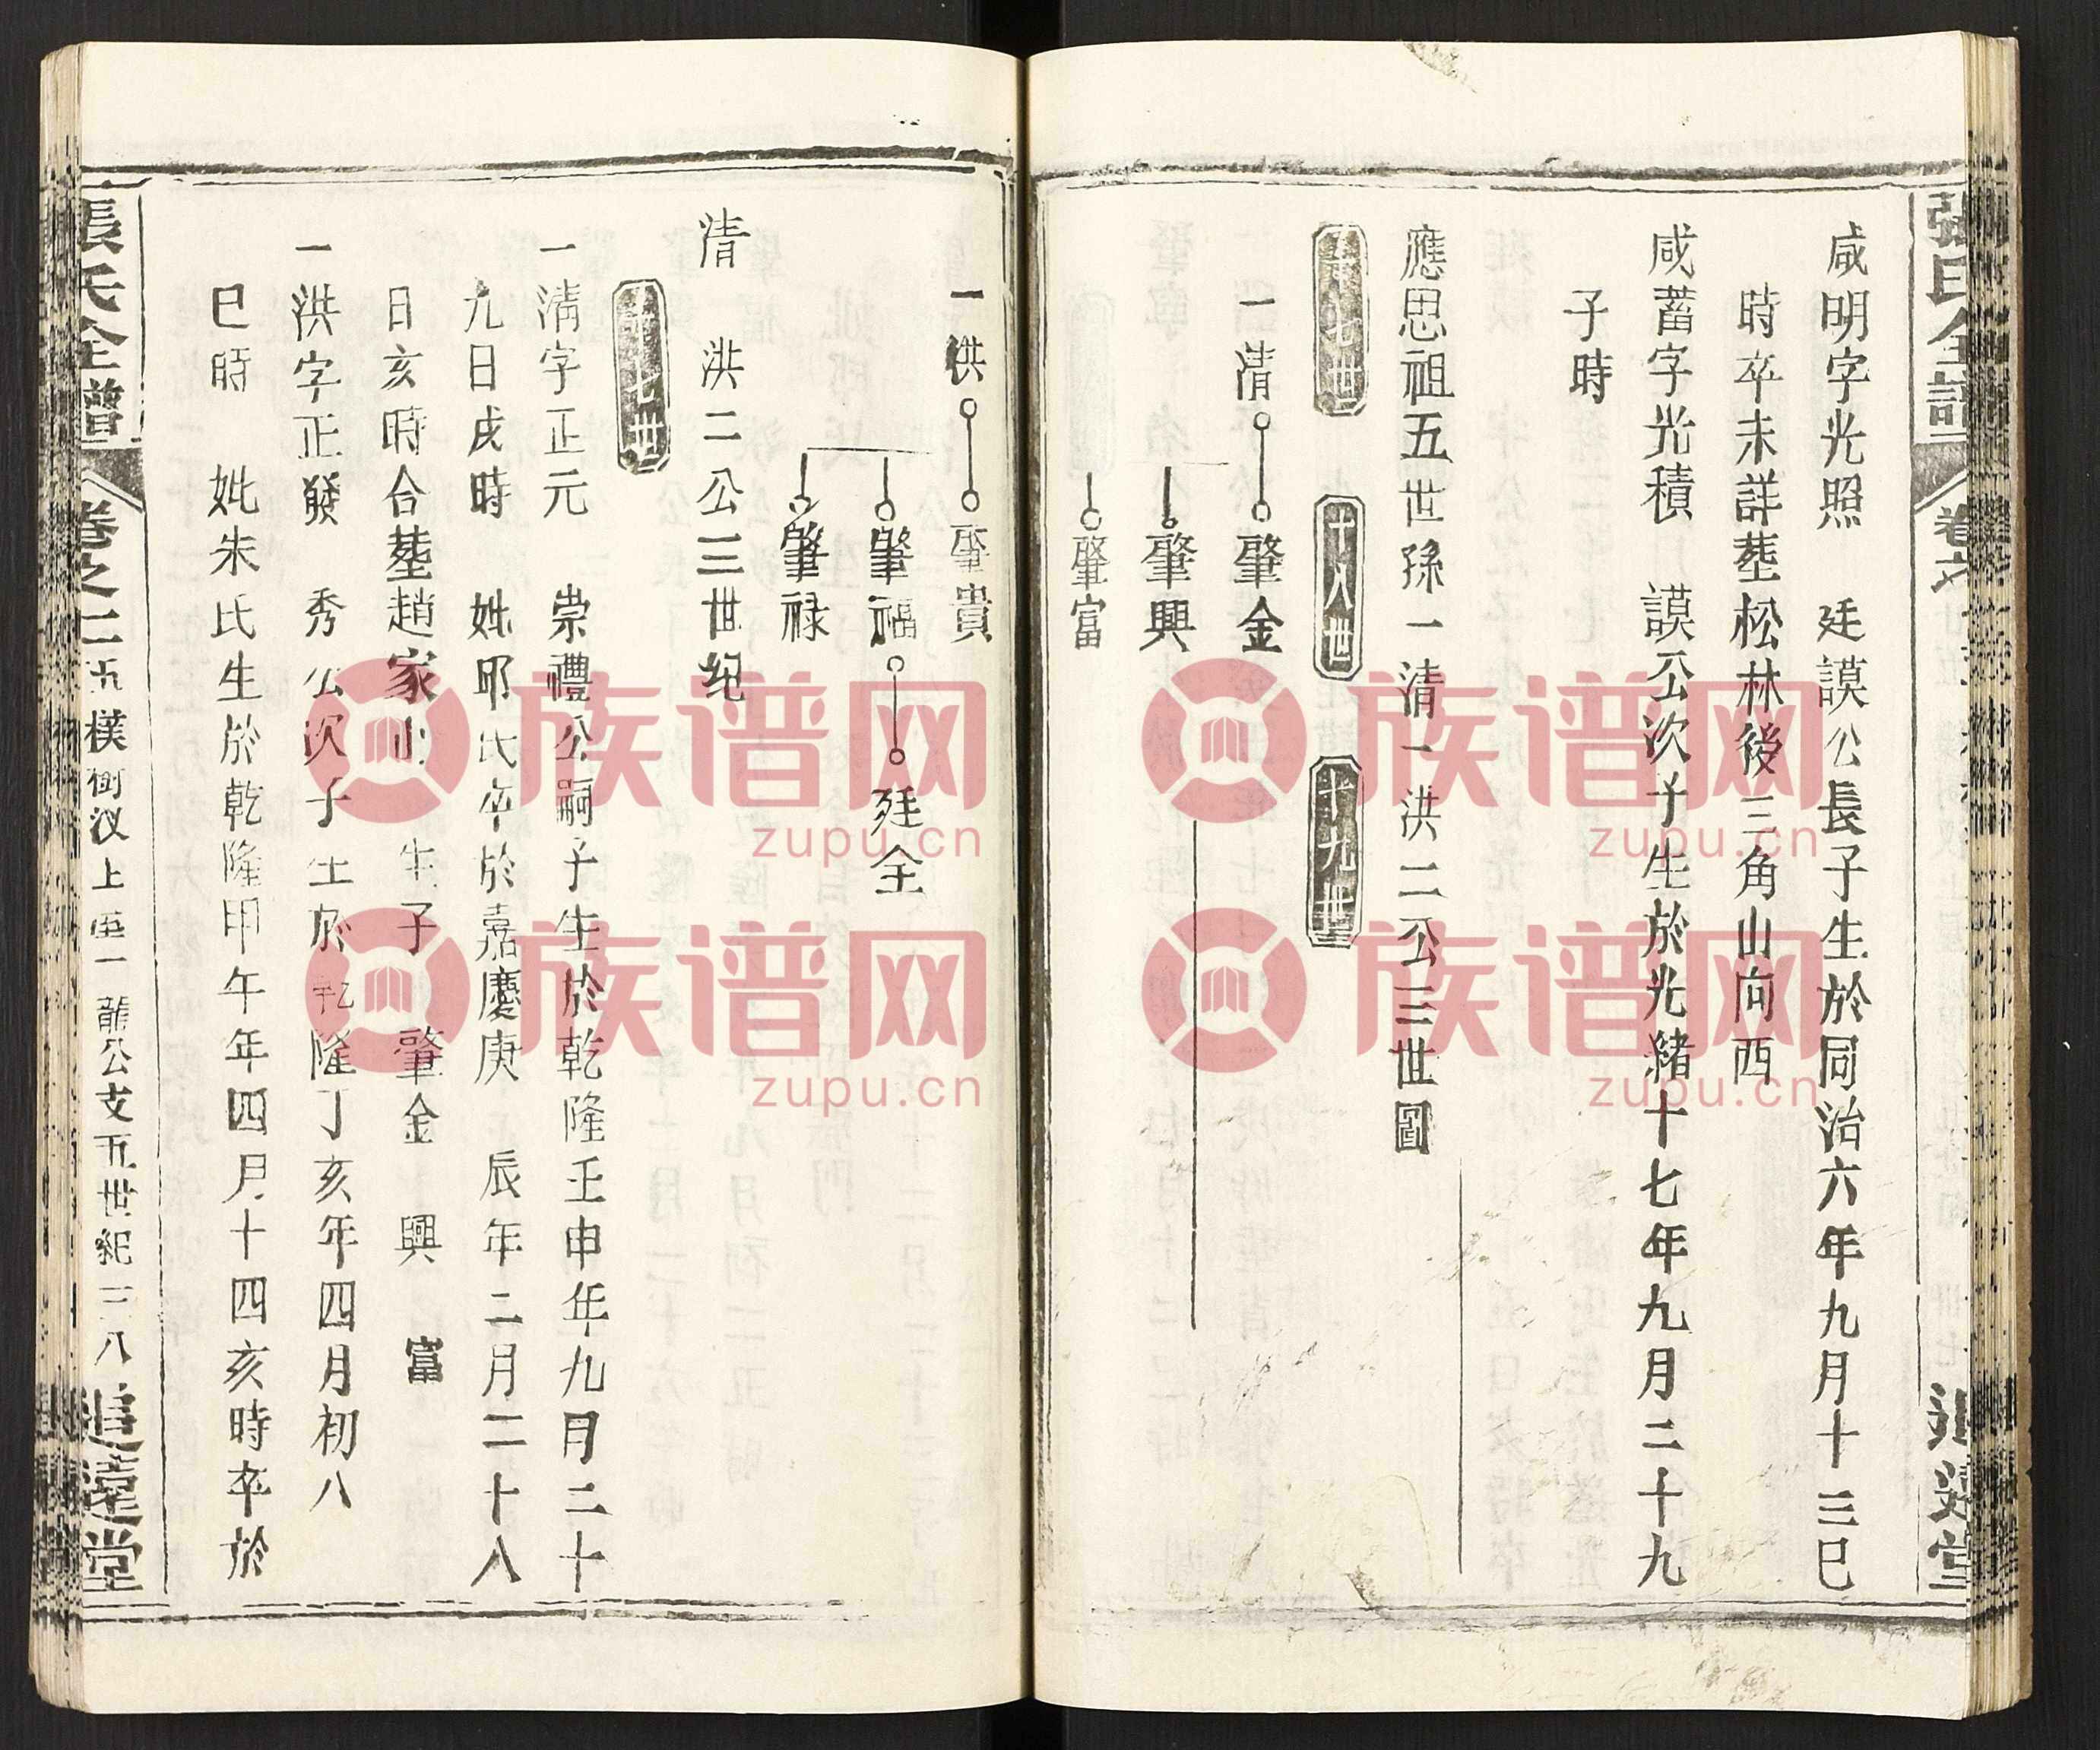 張氏全譜
追遠堂
咸明字光照　廷謨公長子生於同治六年九月十三巳
時卒未詳塟松林後三角山向西
咸蓄字光積　謨公次子生於光緒十七年九月二十九
子時
應思祖五世孫一清一洪二公三世圖
十七世　十八世　十九世
一清　肇金
肇興
肇富
一洪　肇貴
肇福　廷全
肇祿
清　洪二公三世紀
十七世
一清字正元　崇禮公嗣子生於乾隆壬申年九月二十
九日戌時　妣邱氏卒於嘉慶庚　辰年二月二十八
日亥時合塟趙家山　生子　肇金　興　富
一洪字正發　秀公次子生於乾隆丁亥年四月初八
巳時　妣朱氏生於乾隆甲午年四月十四亥時卒於
張氏全譜
卷之二五樸樹汊上重一龍公支五世紀三八
追遠堂
族谱网
zupu.cn
族谱网
zupu.cn
族谱网
zupu.cn
族谱网
zupu.cn